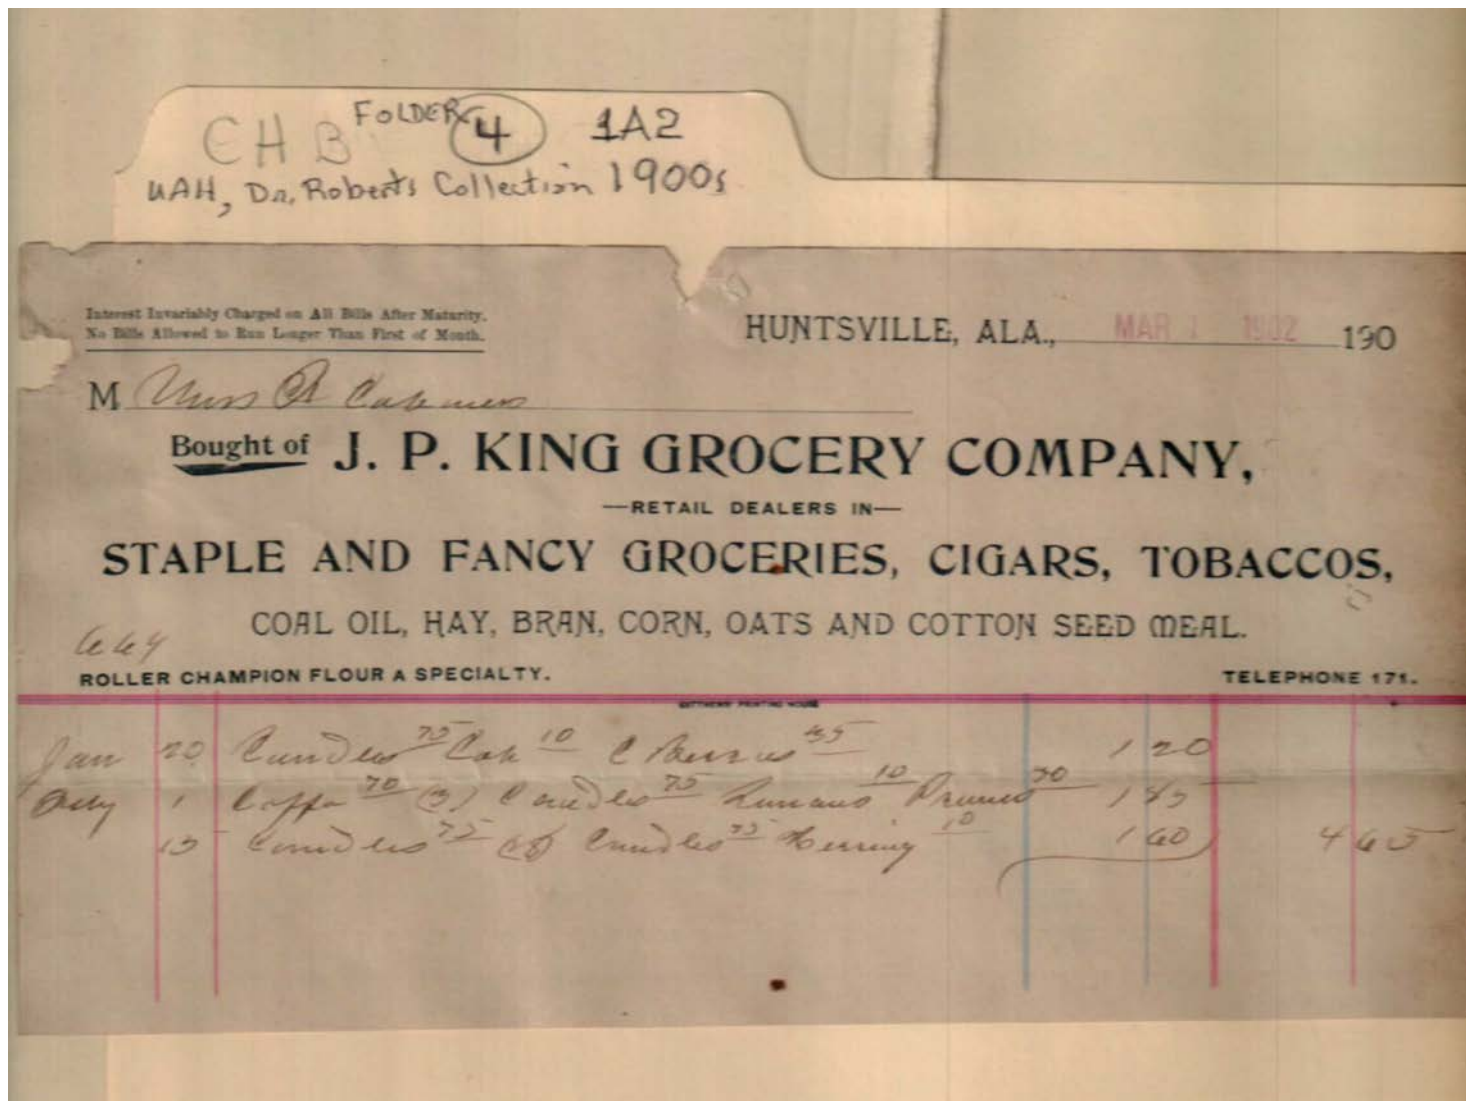 CHB FOLDER 4 1A2
UAH, Dr. Roberts Collection 1900s
Interest Invariably Charged on All Bills After Maturity.
No Bills Allowed to Run Longer Than First of Month.
HUNTSVILLE, ALA., MAR 1 1902 190
M Miss
Bought of J. P. KING GROCERY COMPANY,
—RETAIL DEALERS IN—
STAPLE AND FANCY GROCERIES, CIGARS, TOBACCOS,
COAL OIL, HAY, BRAN, CORN, OATS AND COTTON SEED MEAL.
664
ROLLER CHAMPION FLOUR A SPECIALTY. TELEPHONE 171.
PRINTING HOUSE
Jan 20 Candles 75 10 C Berries 35 1 20
1 70 (3) Candles 75 10 Prunes 30 1 85
15 Candles 75 Candles 75 Herring 10 1 60 4 65